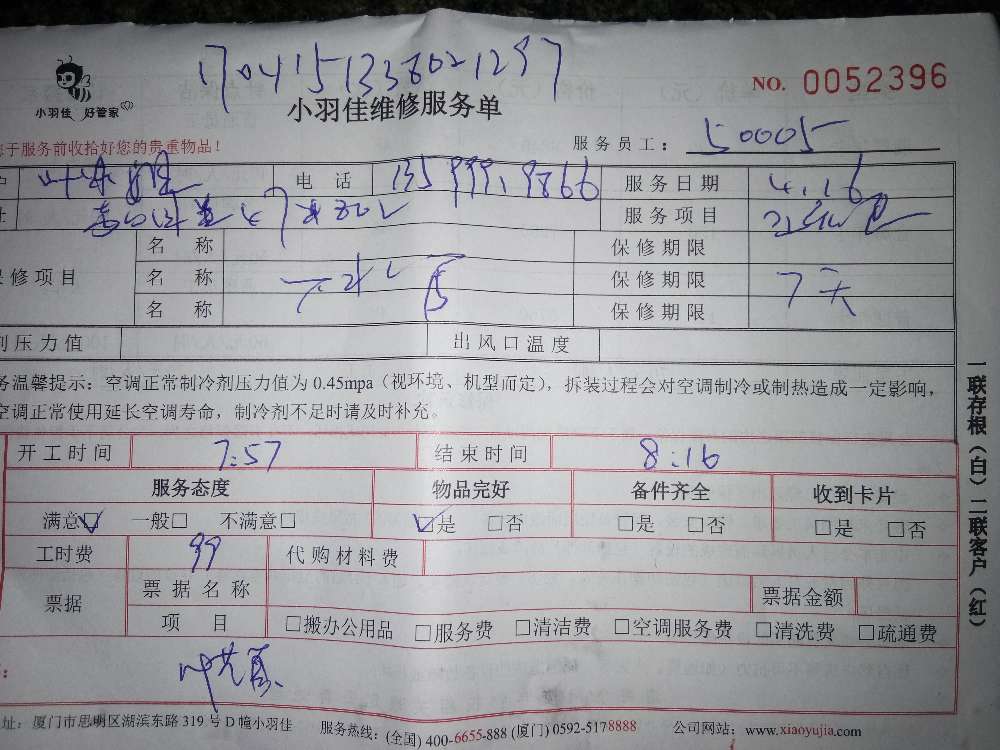 1704151338021297
NO. 0052396
小羽佳 好管家
小羽佳维修服务单
于服务前收拾好您的贵重物品！
服务员工： 50005
电话 135 999, 9866 服务日期 4.16
服务项目
名称 保修期限
保修项目 名称 保修期限 7天
名称 保修期限
压力值 出风口温度
务温馨提示：空调正常制冷剂压力值为 0.45mpa（视环境、机型而定），拆装过程会对空调制冷或制热造成一定影响，
空调正常使用延长空调寿命，制冷剂不足时请及时补充。
开工时间 7:57 结束时间 8:16
服务态度 物品完好 备件齐全 收到卡片
满意☑ 一般□ 不满意□ ☑是 □否 □是 □否 □是 □否
工时费 99 代购材料费
票据 票据名称 票据金额
项目 □搬办公用品 □服务费 □清洁费 □空调服务费 □清洗费 □疏通费
址：厦门市思明区湖滨东路 319 号 D 幢小羽佳 服务热线：(全国) 400-6655-888 (厦门) 0592-5178888 公司网站：www.xiaoyujia.com
一联存根（白）二联客户（红）